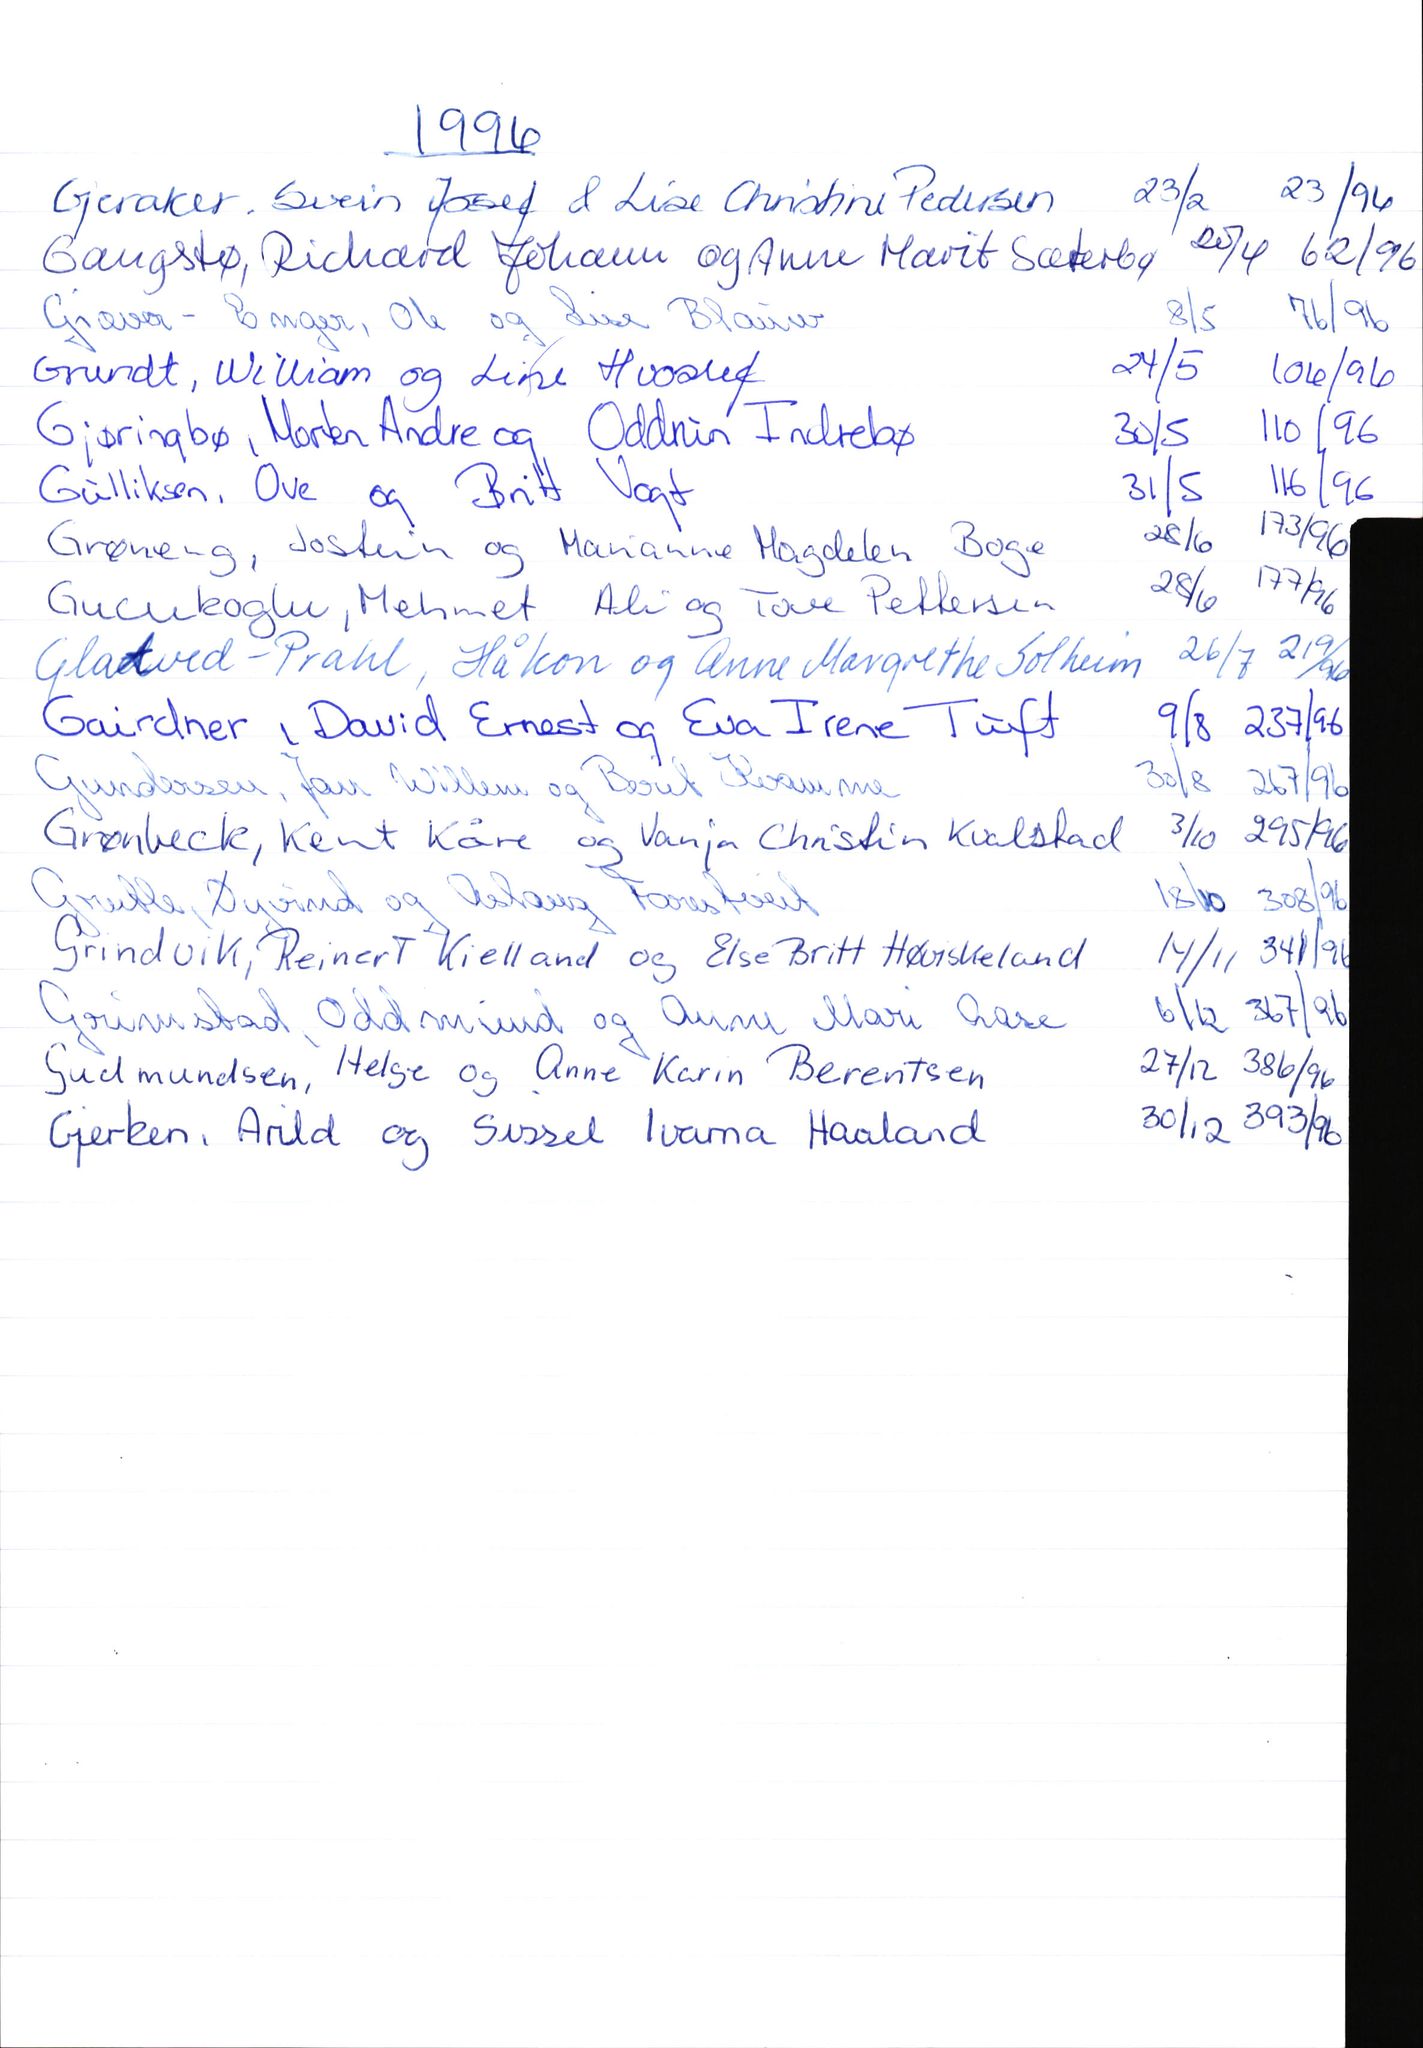 1996
Gjeraker. Svein Josef & Lise Christine Pedersen 23/2 23/96
Gaugstø, Richard Johann og Anne Marit Sæterbø 25/4 62/96
Gjøvor-Enger, Ole og Lise Blauw 8/5 76/96
Grundt, William og Line Hvoslef 24/5 106/96
Gjøringbø, Morten Andre og Oddrun Indrebø 30/5 110/96
Gulliksen. Ove og Britt Vogt 31/5 116/96
Grøneng, Jostein og Marianne Magdelen Boge 28/6 173/96
Gucukoglu, Mehmet Ali og Tove Pettersen 28/6 177/96
Glatved-Prahl, Håkon og Anne Margrethe Solheim 26/7 219/96
Gairdner, David Ernest og Eva Irene Tuft 9/8 237/96
Gundersen, Jan Willem og Berit Kvamme 30/8 267/96
Grønbeck, Kent Kåre og Vanja Christin Kvalstad 3/10 295/96
Gruttle, Øyvind og Aslaug Tveit 18/10 308/96
Grindvik, Reinert Kielland og Else Britt Høviskeland 14/11 341/96
Grimstad, Oddmund og Anne Mari Aase 6/12 367/96
Gudmundsen, Helge og Anne Karin Berentsen 27/12 386/96
Gjerken. Arild og Sissel Ivarna Haaland 30/12 393/96